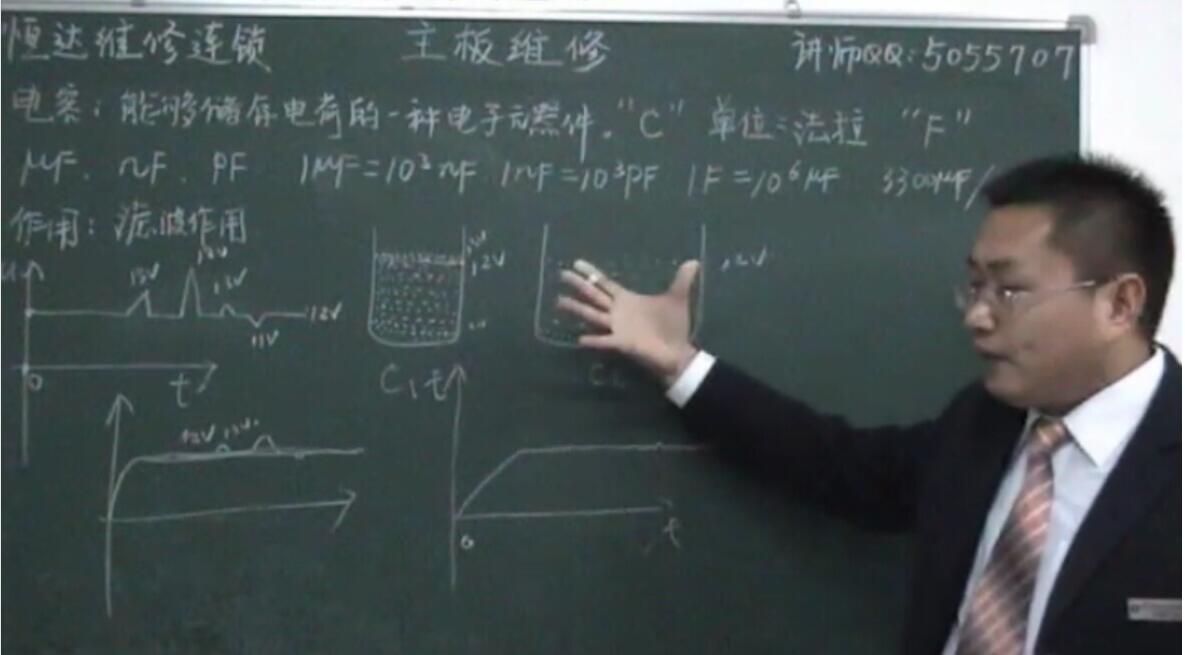 恒达维修连锁 主板维修 讲师QQ:5055707
电容:能够储存电荷的一种电子元器件."C" 单位:法拉 "F"
μF、nF、PF 1μF=10³nF 1nF=10³PF 1F=10⁶μF 3300μF/
作用:滤波作用
u 13V 13V 12V 11V
12V 12V
0 t
C₁ t
12V 13V
0 t